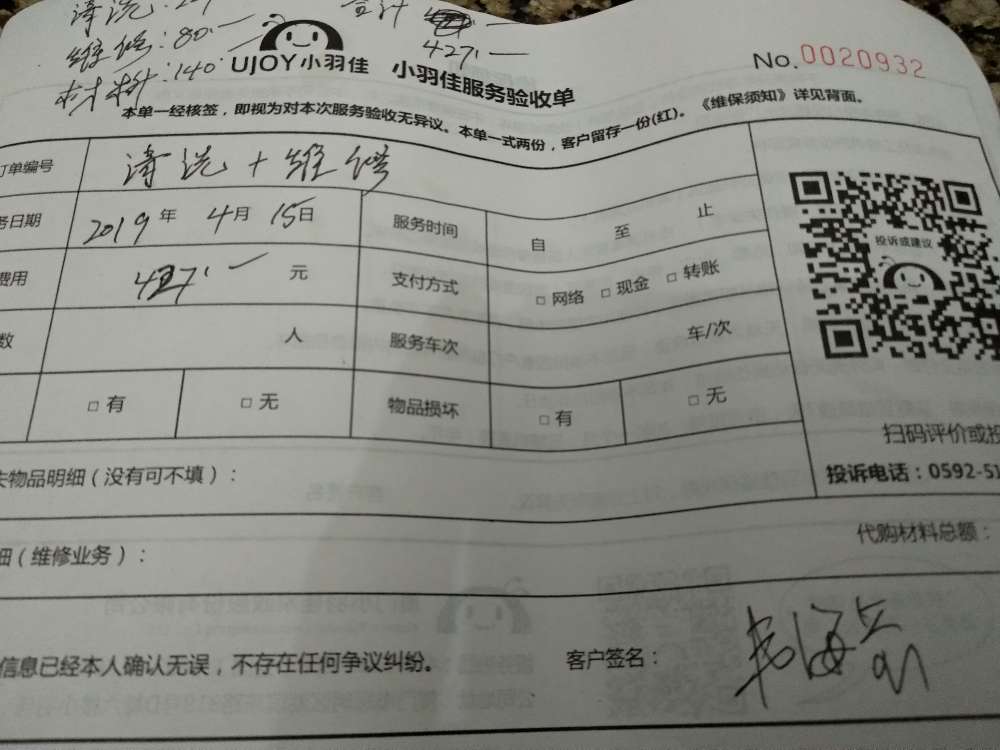 清洗: 合计
维修: 80.— 427.—
材料: 140.— UJOY小羽佳 小羽佳服务验收单 No.0020932
本单一经核签，即视为对本次服务验收无异议。本单一式两份，客户留存一份(红)。《维保须知》详见背面。
订单编号 清洗+维修
务日期 2019年 4月 15日 服务时间 自 至 止
费用 427.— 元 支付方式 □网络 □现金 □转账
数 人 服务车次 车/次
□有 □无 物品损坏 □有 □无
投诉或建议
扫码评价或投
投诉电话：0592-51
失物品明细（没有可不填）：
代购材料总额：
细（维修业务）：
信息已经本人确认无误，不存在任何争议纠纷。 客户签名：